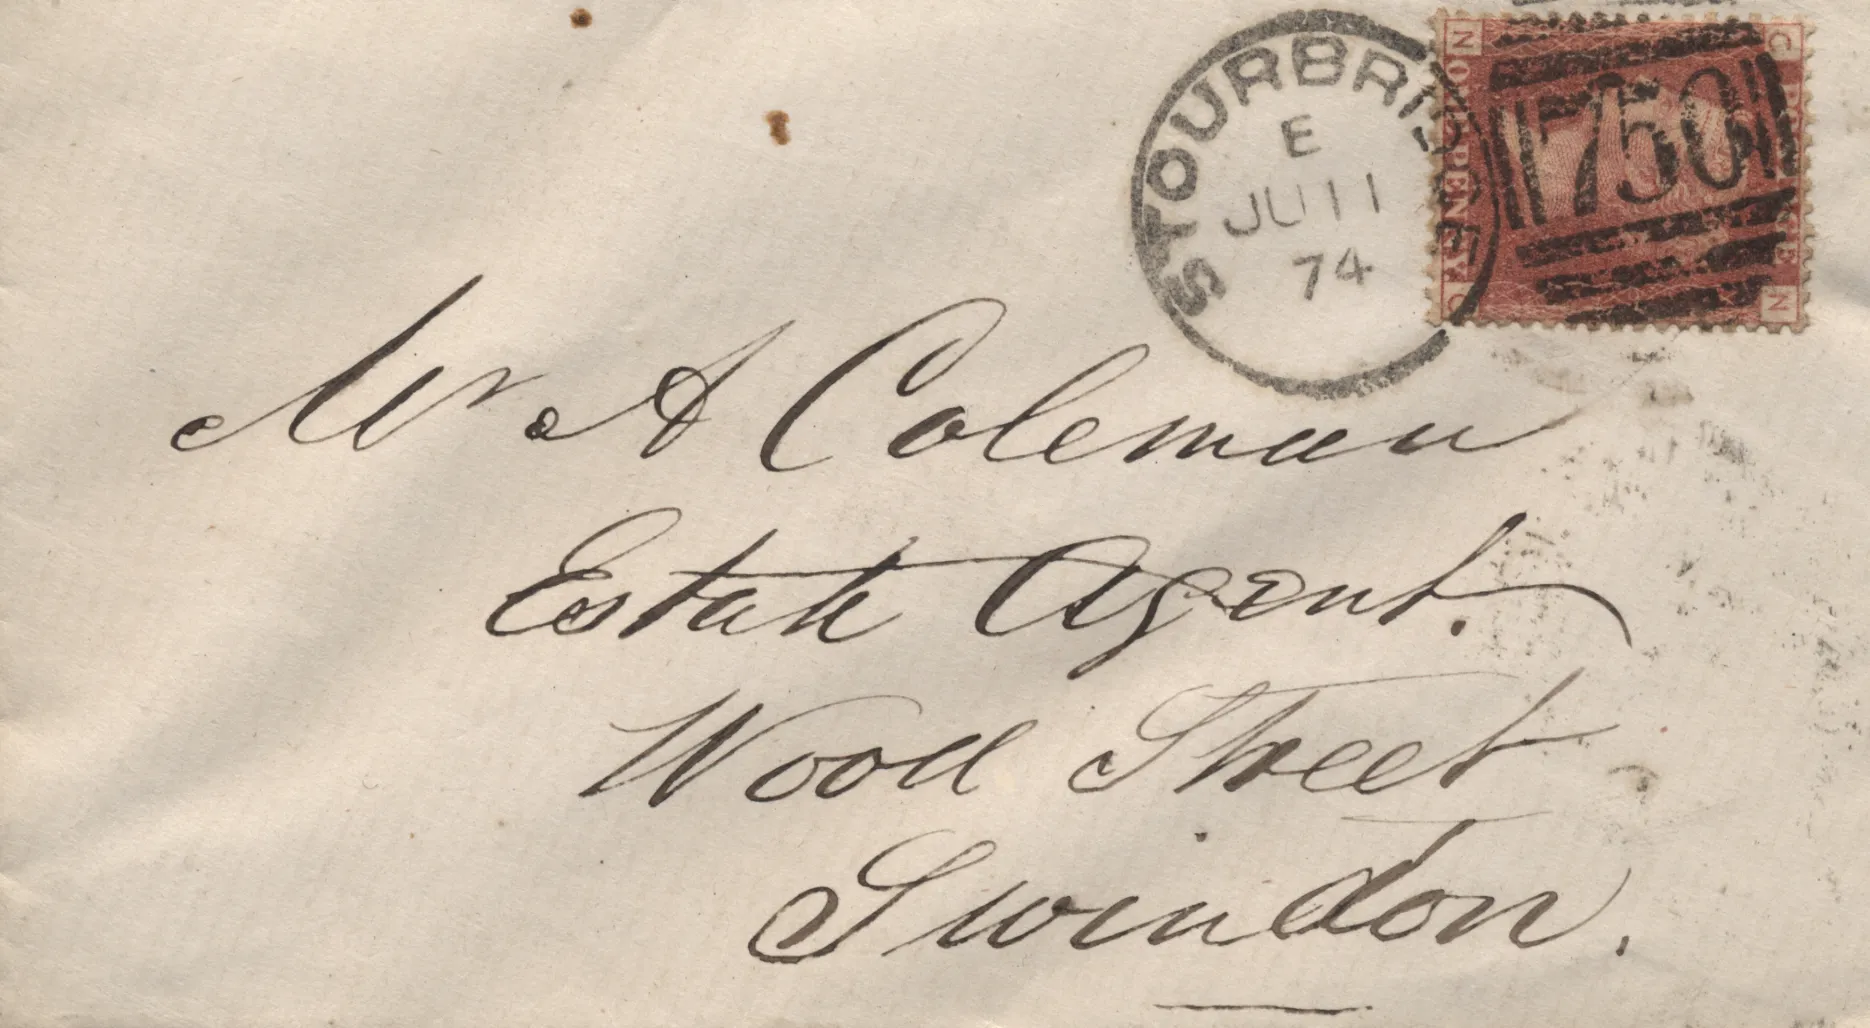 STOURBRIDGE
E
JU 11
74
750
N
C
ONE PENNY
C
N
Mr A Coleman
Estate Agent.
Wood Street
Swindon.